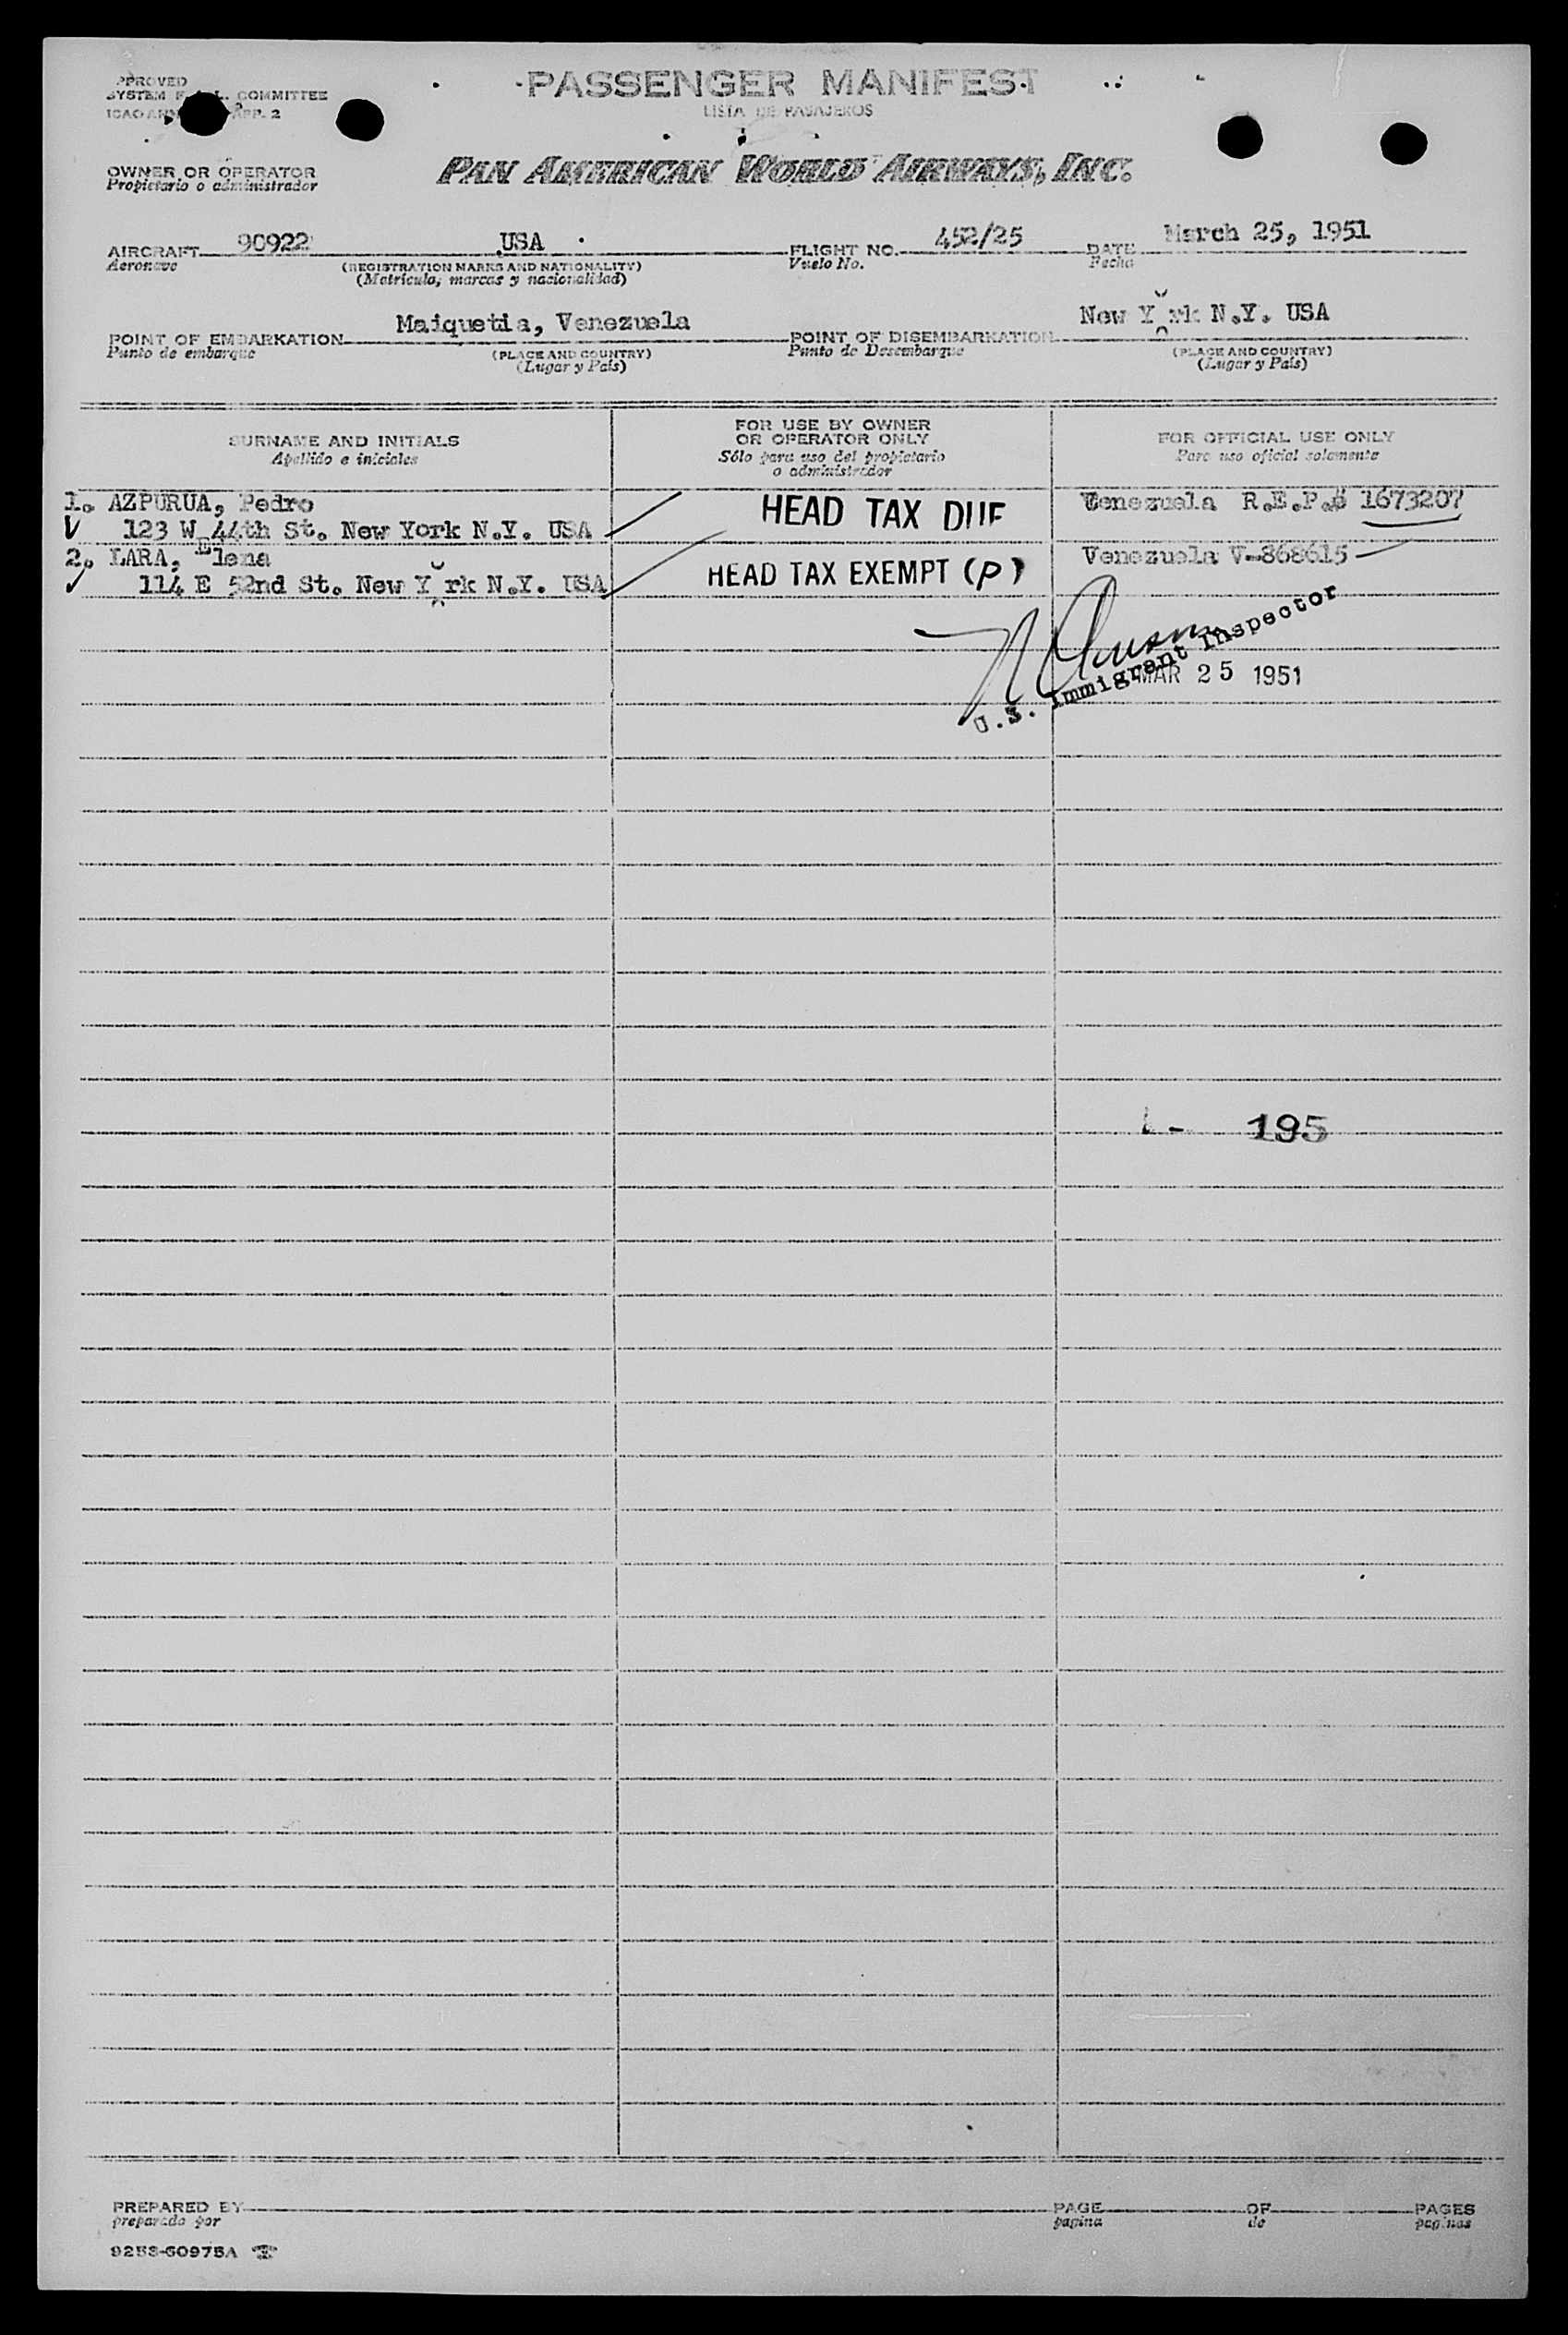 PPROVED
SYSTEM F. A. L. COMMITTEE
ICAO ANN APP. 2
PASSENGER MANIFEST
LISTA DE PASAJEROS
OWNER OR OPERATOR
Propietario o administrador
PAN AMERICAN WORLD AIRWAYS, INC.
AIRCRAFT 90922 USA FLIGHT NO. 452/25 DATE March 25, 1951
Aeronave (REGISTRATION MARKS AND NATIONALITY) Vuelo No. Fecha
(Matrícula, marcas y nacionalidad)
POINT OF EMBARKATION Maiquetia, Venezuela POINT OF DISEMBARKATION New York N.Y. USA
Punto de embarque (PLACE AND COUNTRY) Punto de Desembarque (PLACE AND COUNTRY)
(Lugar y País) (Lugar y País)
SURNAME AND INITIALS
Apellido e iniciales
FOR USE BY OWNER
OR OPERATOR ONLY
Sólo para uso del propietario
o administrador
FOR OFFICIAL USE ONLY
Para uso oficial solamente
1. AZPURUA, Pedro HEAD TAX DUE Venezuela R.E.P.# 1673207
V 123 W 44th St. New York N.Y. USA
2. LARA, Elena HEAD TAX EXEMPT (P) Venezuela V-868615
✓ 114 E 52nd St. New York N.Y. USA
U.S. Immigrant Inspector
MAR 25 1951
- 195
PREPARED BY PAGE OF PAGES
preparado por pagina de paginas
9258-60975A